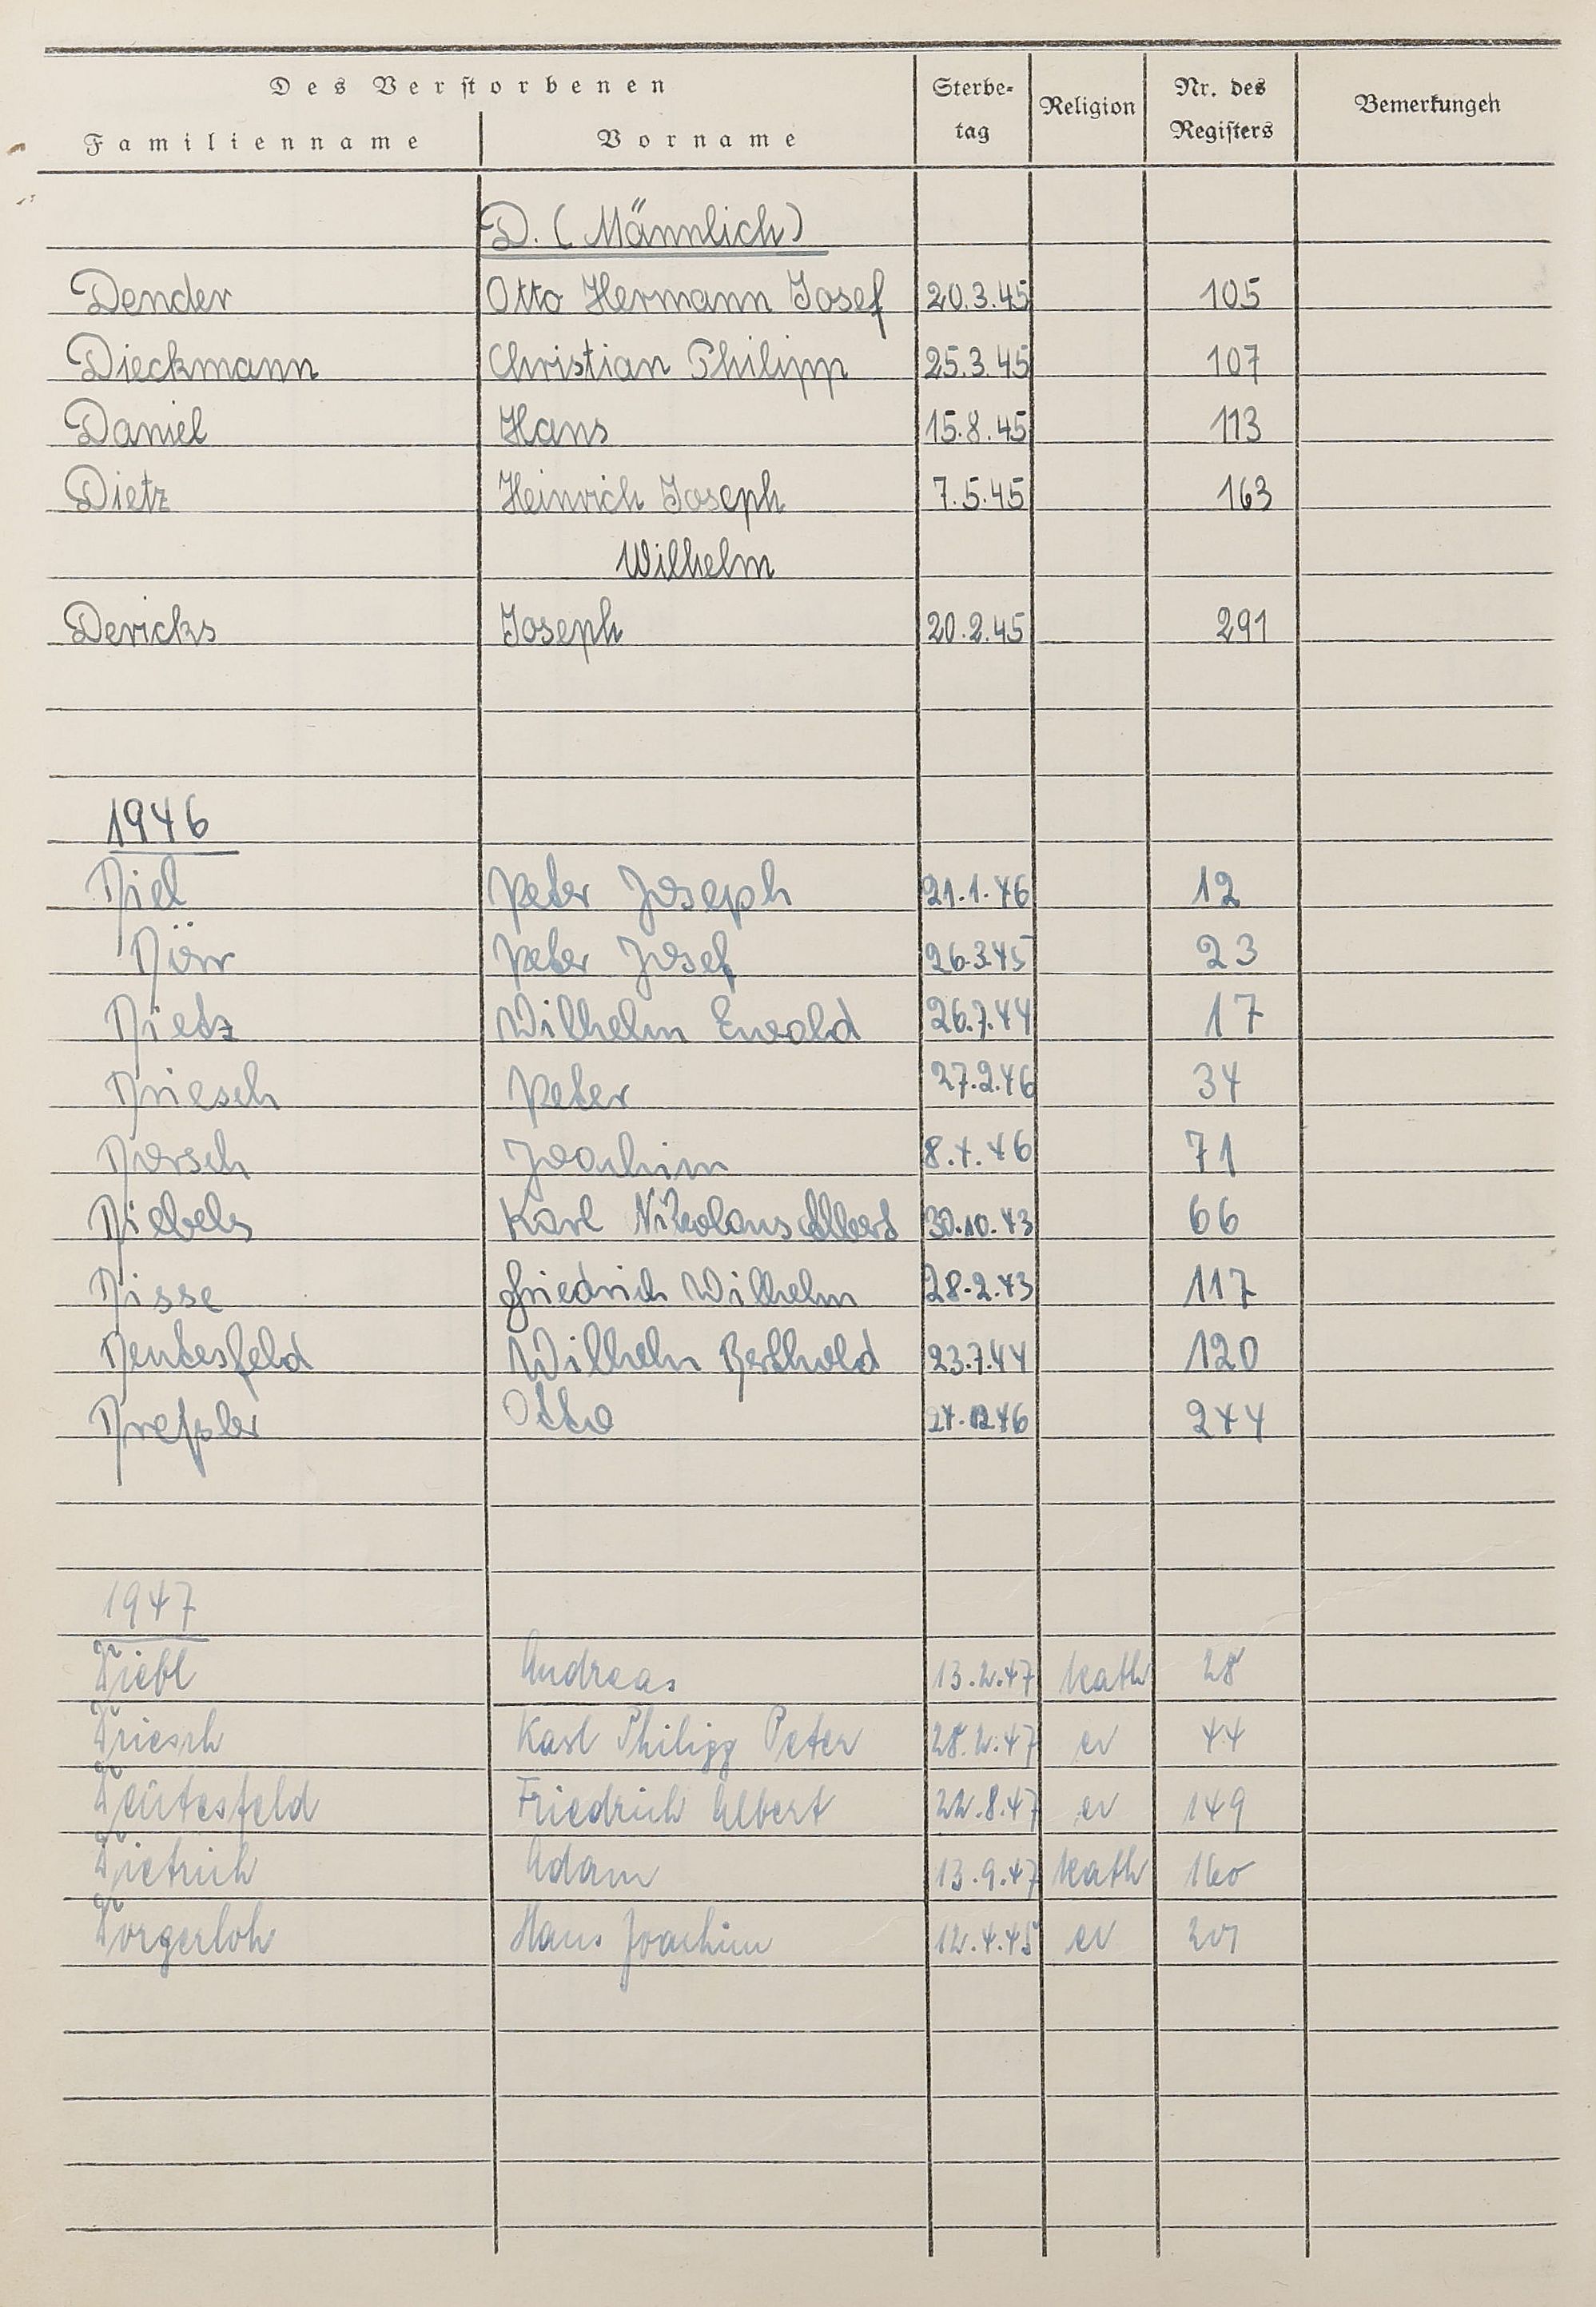 Des Verstorbenen
Familienname Vorname Sterbe-tag Religion Nr. des Registers Bemerkungen
D. (Männlich)
Dender Otto Hermann Josef 20.3.45 105
Dieckmann Christian Philipp 25.3.45 107
Daniel Hans 15.8.45 113
Dietz Heinrich Joseph 7.5.45 163
Wilhelm
Dericks Joseph 20.2.45 291
1946
Diel Peter Joseph 21.1.46 12
Dörr Peter Josef 26.3.45 23
Dietz Wilhelm Ewald 26.7.44 17
Driesch Peter 27.2.46 34
Dorsch Joachim 8.4.46 71
Diebels Karl Nikolaus Albert 30.10.43 66
Disse Friedrich Wilhelm 28.2.43 117
Deutesfeld Wilhelm Berthold 23.7.44 120
Dreßler Otto 24.12.46 244
1947
Diebl Andreas 13.2.47 kath 28
Driesch Karl Philipp Peter 28.2.47 ev 44
Deutesfeld Friedrich Albert 22.8.47 ev 149
Dietrich Adam 13.9.47 kath 160
Dorgerloh Hans Joachim 12.4.45 ev